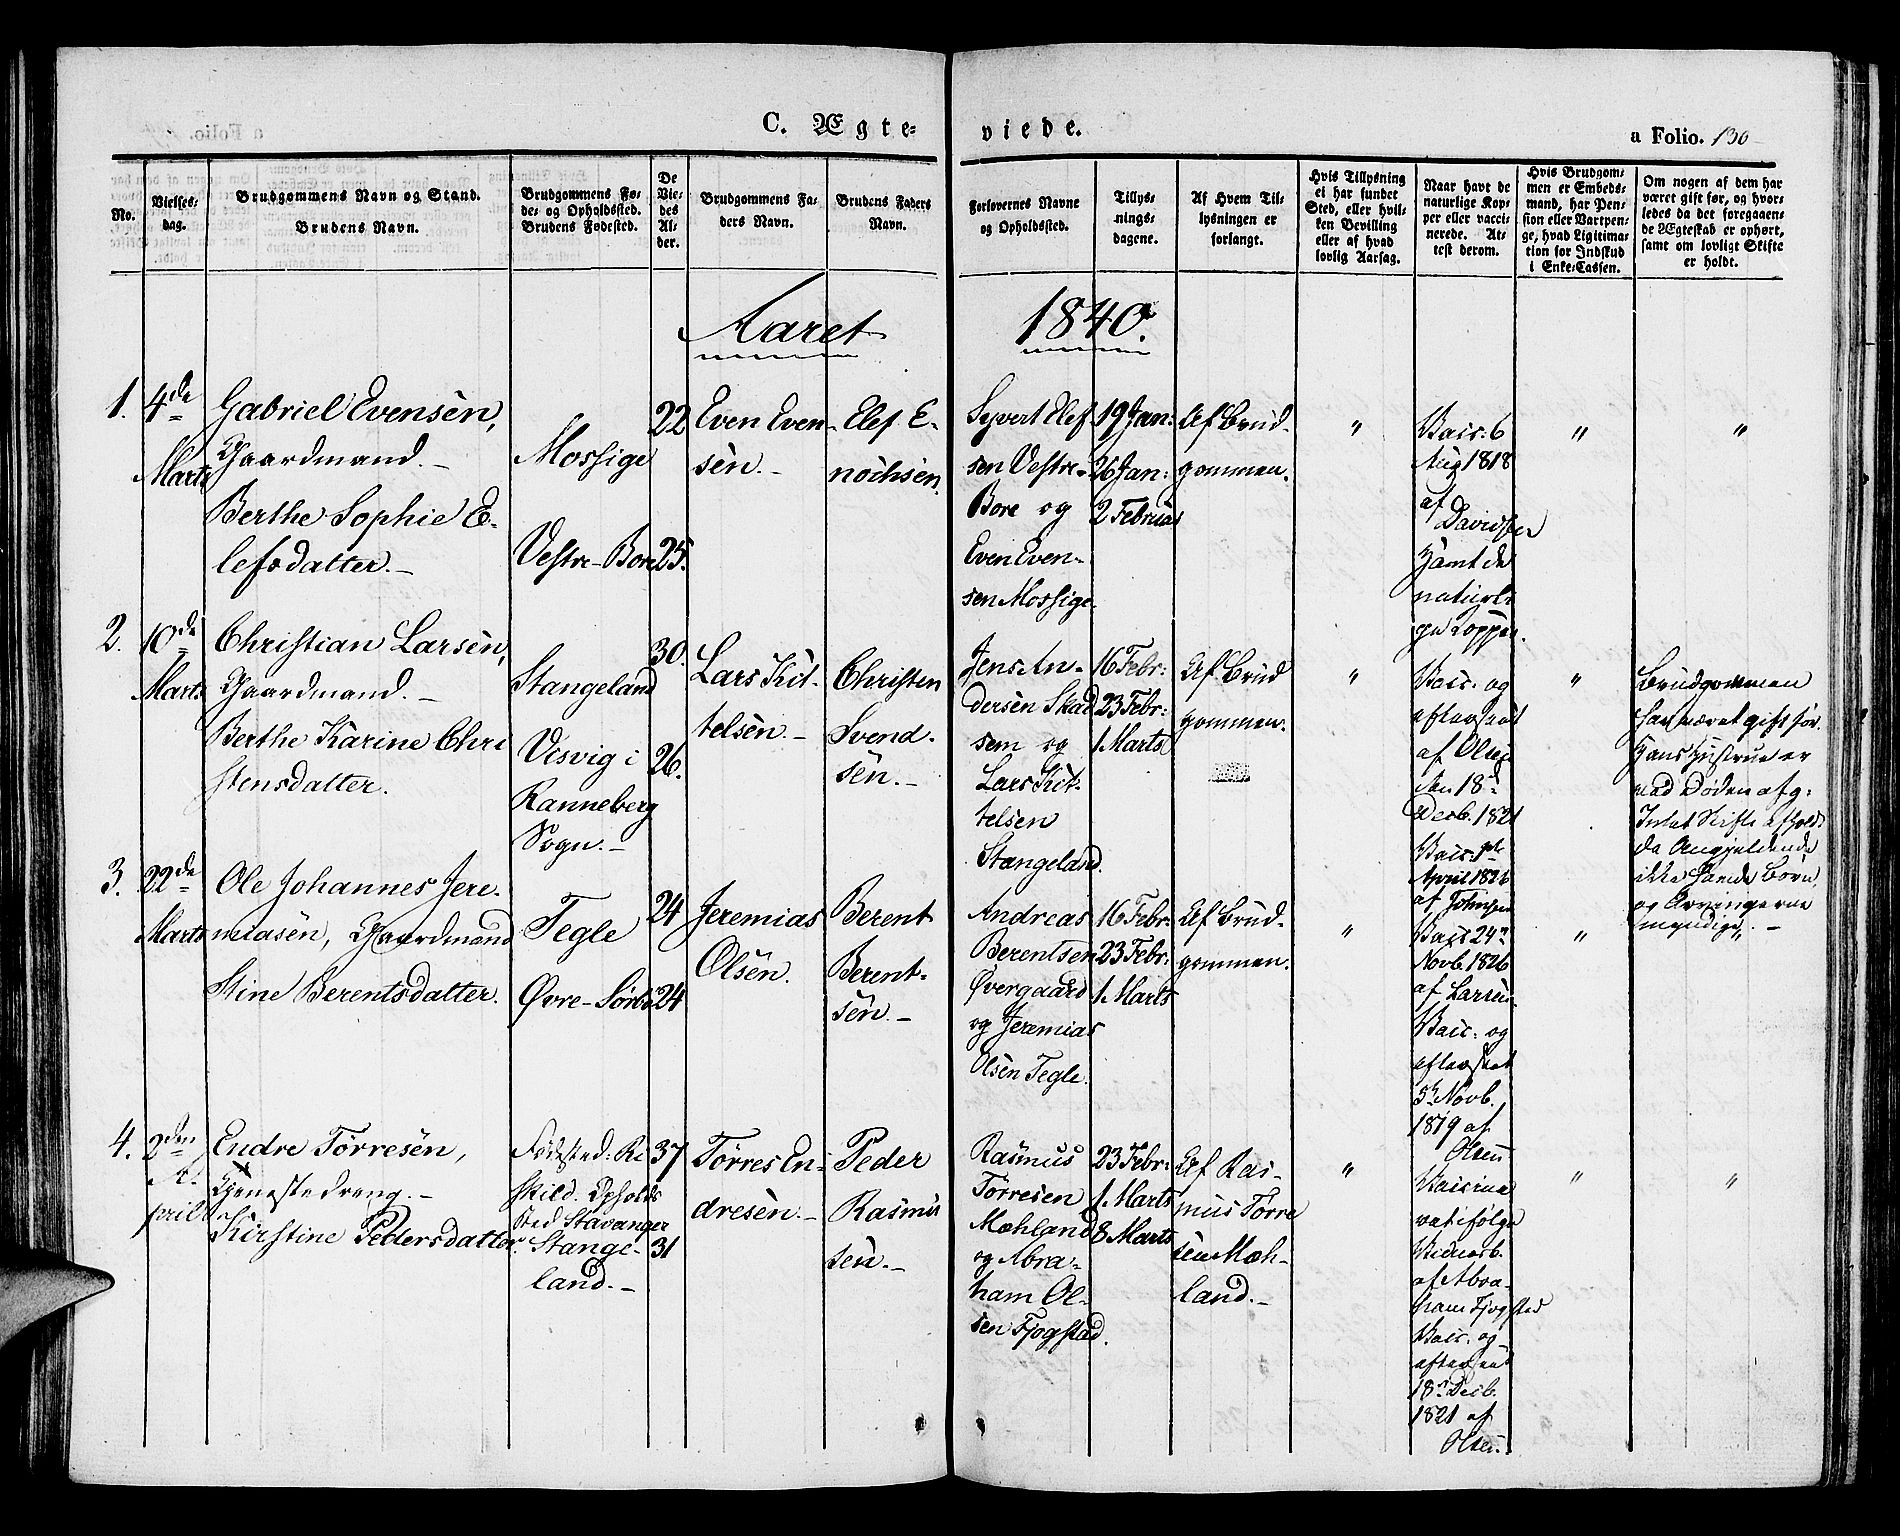 C. Ægte-
viede.
a Folio. 130
No.
Vielses-
dag.
Brudgommens Navn og Stand.
Brudens Navn.
Brudgommens Fø-
de- og Opholdssted.
Brudens Fødested.
De
Vie-
des
Al-
der.
Brudgommens Fa-
ders Navn.
Brudens Faders
Navn.
Forlovernes Navne
og Opholdssted.
Tillys-
nings-
dagene.
Af Hvem Til-
lysningen er
forlangt.
Hvis Tillysning
ei har fundet
Sted, eller hvil-
ken Bevilling
eller af hvad
lovlig Aarsag.
Naar havt de
naturlige Kop-
per eller vacci-
nerede. At-
test derom.
Hvis Brudgom-
men er Embeds-
mand, har Pen-
sion eller Vartpen-
ge, hvad Legitima-
tion for Indskud
i Enke-Cassen.
Om nogen af dem har
været gift før, og hvor-
ledes da det foregaaen-
de Ægteskab er ophørt,
samt om lovligt Skifte
er holdt.
Aaret 1840.
1.
4de
Marts
Gabriel Evensen,
Gaardmand.-
Berthe Sophie E-
lefsdatter.-
Mossige
Vestre-Bore
22
25.
Even Even-
sen.-
Elef E-
nochsen.
Syvert Elef
sen Vestre-
Bore og
Even Even-
sen Mossige.
19 Jan:
26 Jan:
2 Februar
Af Brud-
gommen.
"
Vacc: 6
Aug 1818
af
Davidsen
samt de
naturli-
ge Kopper.
"
"
2.
10de
Marts
Christian Larsen,
Gaardmand.-
Berthe Karine Chri
stensdatter.
Stangeland
Visvig i
Ranneberg
Sogn.-
30.
26.
Lars Kit-
telsen.-
Christen
Svend-
sen.-
Jens An-
dersen Skad
sem og
Lars Kit-
telsen
Stangeland.
16 Febr:
23 Febr:
1. Marts
Af Brud
gommen.
"
Vacc: og
attesteret
af Olsen
den 18d
Decb. 1821
Vacc: 1ste
April 1826
af Johnsen
"
Brudgommen
har været gift før.
Hans Hustrue er
ved Døden afg:
Intet Skifte afhold-
da Angjeldende
ikke havde Børn,
og Arvingerne
myndige.-
3.
22de
Marts
Ole Johannes Jere-
miasen, Gaardmand
Stine Berentsdatter.
Tegle
Øvre-Sørbø
24
24
Jeremias
Olsen.
Berent
Berent-
sen.-
Andreas
Berentsen
Øvergaard
og Jeremias
Olsen Tegle.
16 Febr:
23 Febr:
1. Marts
Af Brud-
gommen.
"
Vacc 24n
Novb. 1826
af Larsen.
Vacc: og
attesteret
5n Novb.
1819 af
Olsen
"
4.
2den
A-
pril
Endre Tørresen,
Tjenestedreng.-
Kirstine Pedersdatter.
Fødested: Ri
skild. Opholds
sted Stavanger
Stange-
land.-
37
31
Tørres En-
dresen.-
Peder
Rasmus
sen.-
Rasmus
Tørresen
Mæhland
og Abra-
ham Ol-
sen Fjogstad.
23 Febr:
1. Marts
8 Marts
Af Ras-
mus Tørre
sen Mæh-
land.-
"
Vaccine
ret ifølge
Vidnesb.
af Abra-
ham Fjogstad
Vacc: og
attesteret
18n Decb.
1821 af
Olsen.
"
"